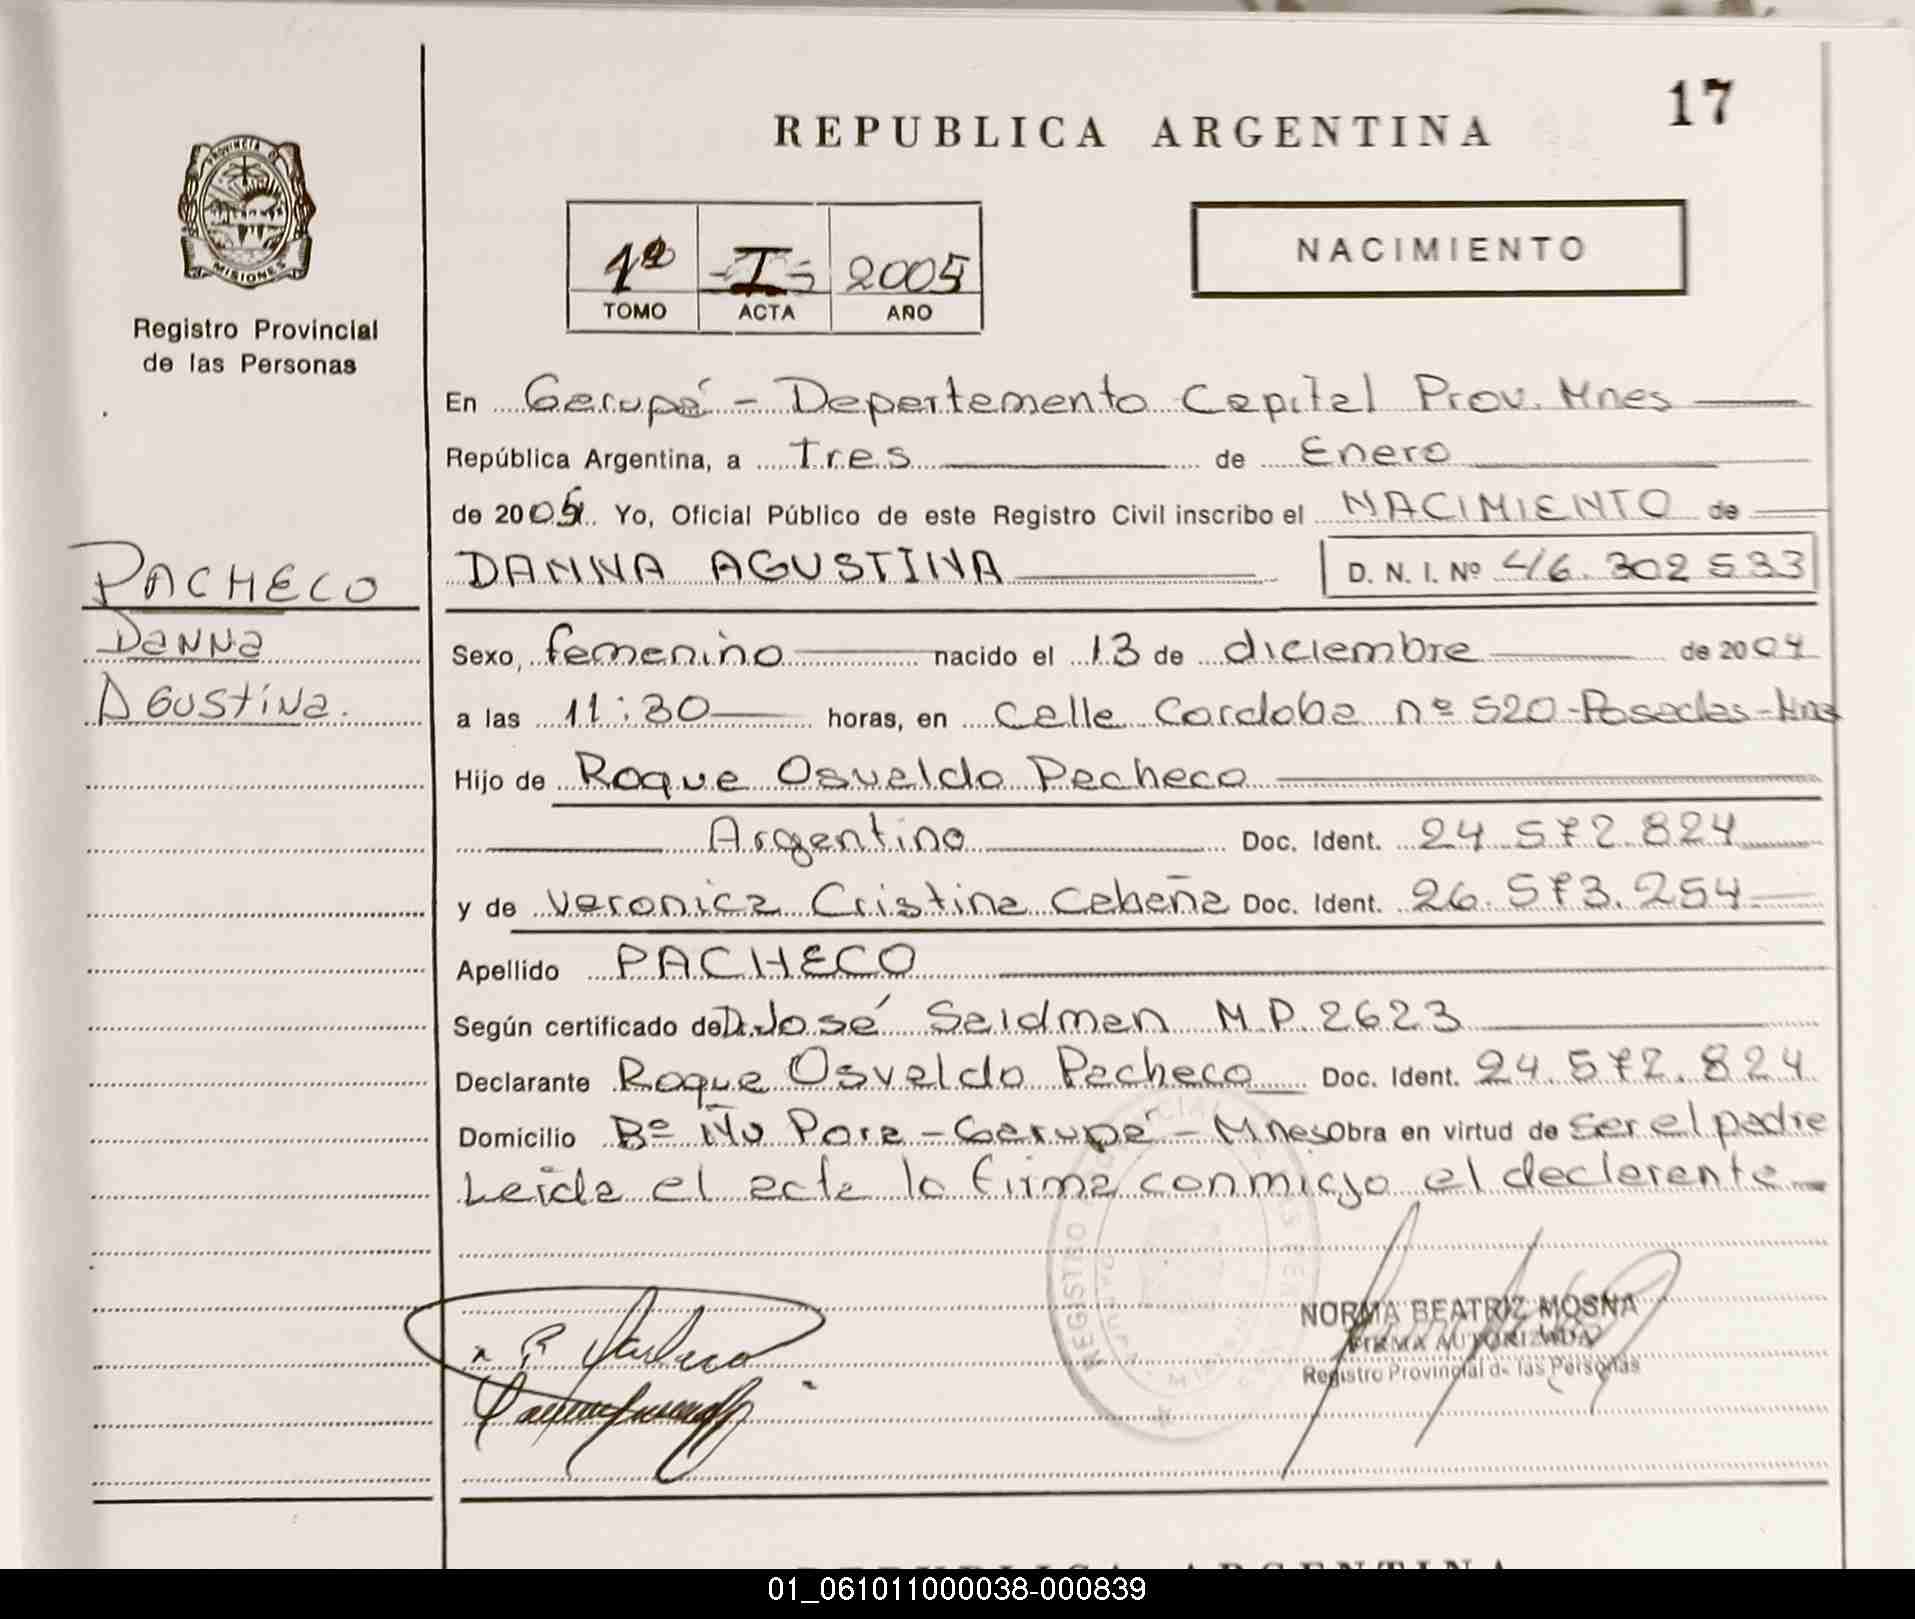 17
REPUBLICA ARGENTINA
PROVINCIA DE
MISIONES
Registro Provincial
de las Personas
1º -I- 2005
TOMO ACTA AÑO
NACIMIENTO
En Garupá - Departamento Capital Prov. Mnes
República Argentina, a Tres de Enero
de 2005. Yo, Oficial Público de este Registro Civil inscribo el NACIMIENTO de
PACHECO
Danna
Agustina.
DANNA AGUSTINA D. N. I. Nº 46.302533
Sexo, femenino nacido el 13 de diciembre de 2004
a las 11:30 horas, en Calle Cordoba nº 520-Posadas-Mnes
Hijo de Roque Osvaldo Pacheco
Argentino Doc. Ident. 24.572.824
y de Veronica Cristina Cabaña Doc. Ident. 26.573.254
Apellido PACHECO
Según certificado de Dr. José Seidman M.P. 2623
Declarante Roque Osvaldo Pacheco Doc. Ident. 24.572.824
Domicilio Bº Ñu Pora - Garupá - Mnes Obra en virtud de ser el padre
Leida el acta la firma conmigo el declarante
REGISTRO
R. Pacheco
NORMA BEATRIZ MOSNA
FIRMA AUTORIZADA
Registro Provincial de las Personas
REPUBLICA ARGENTINA
01_061011000038-000839